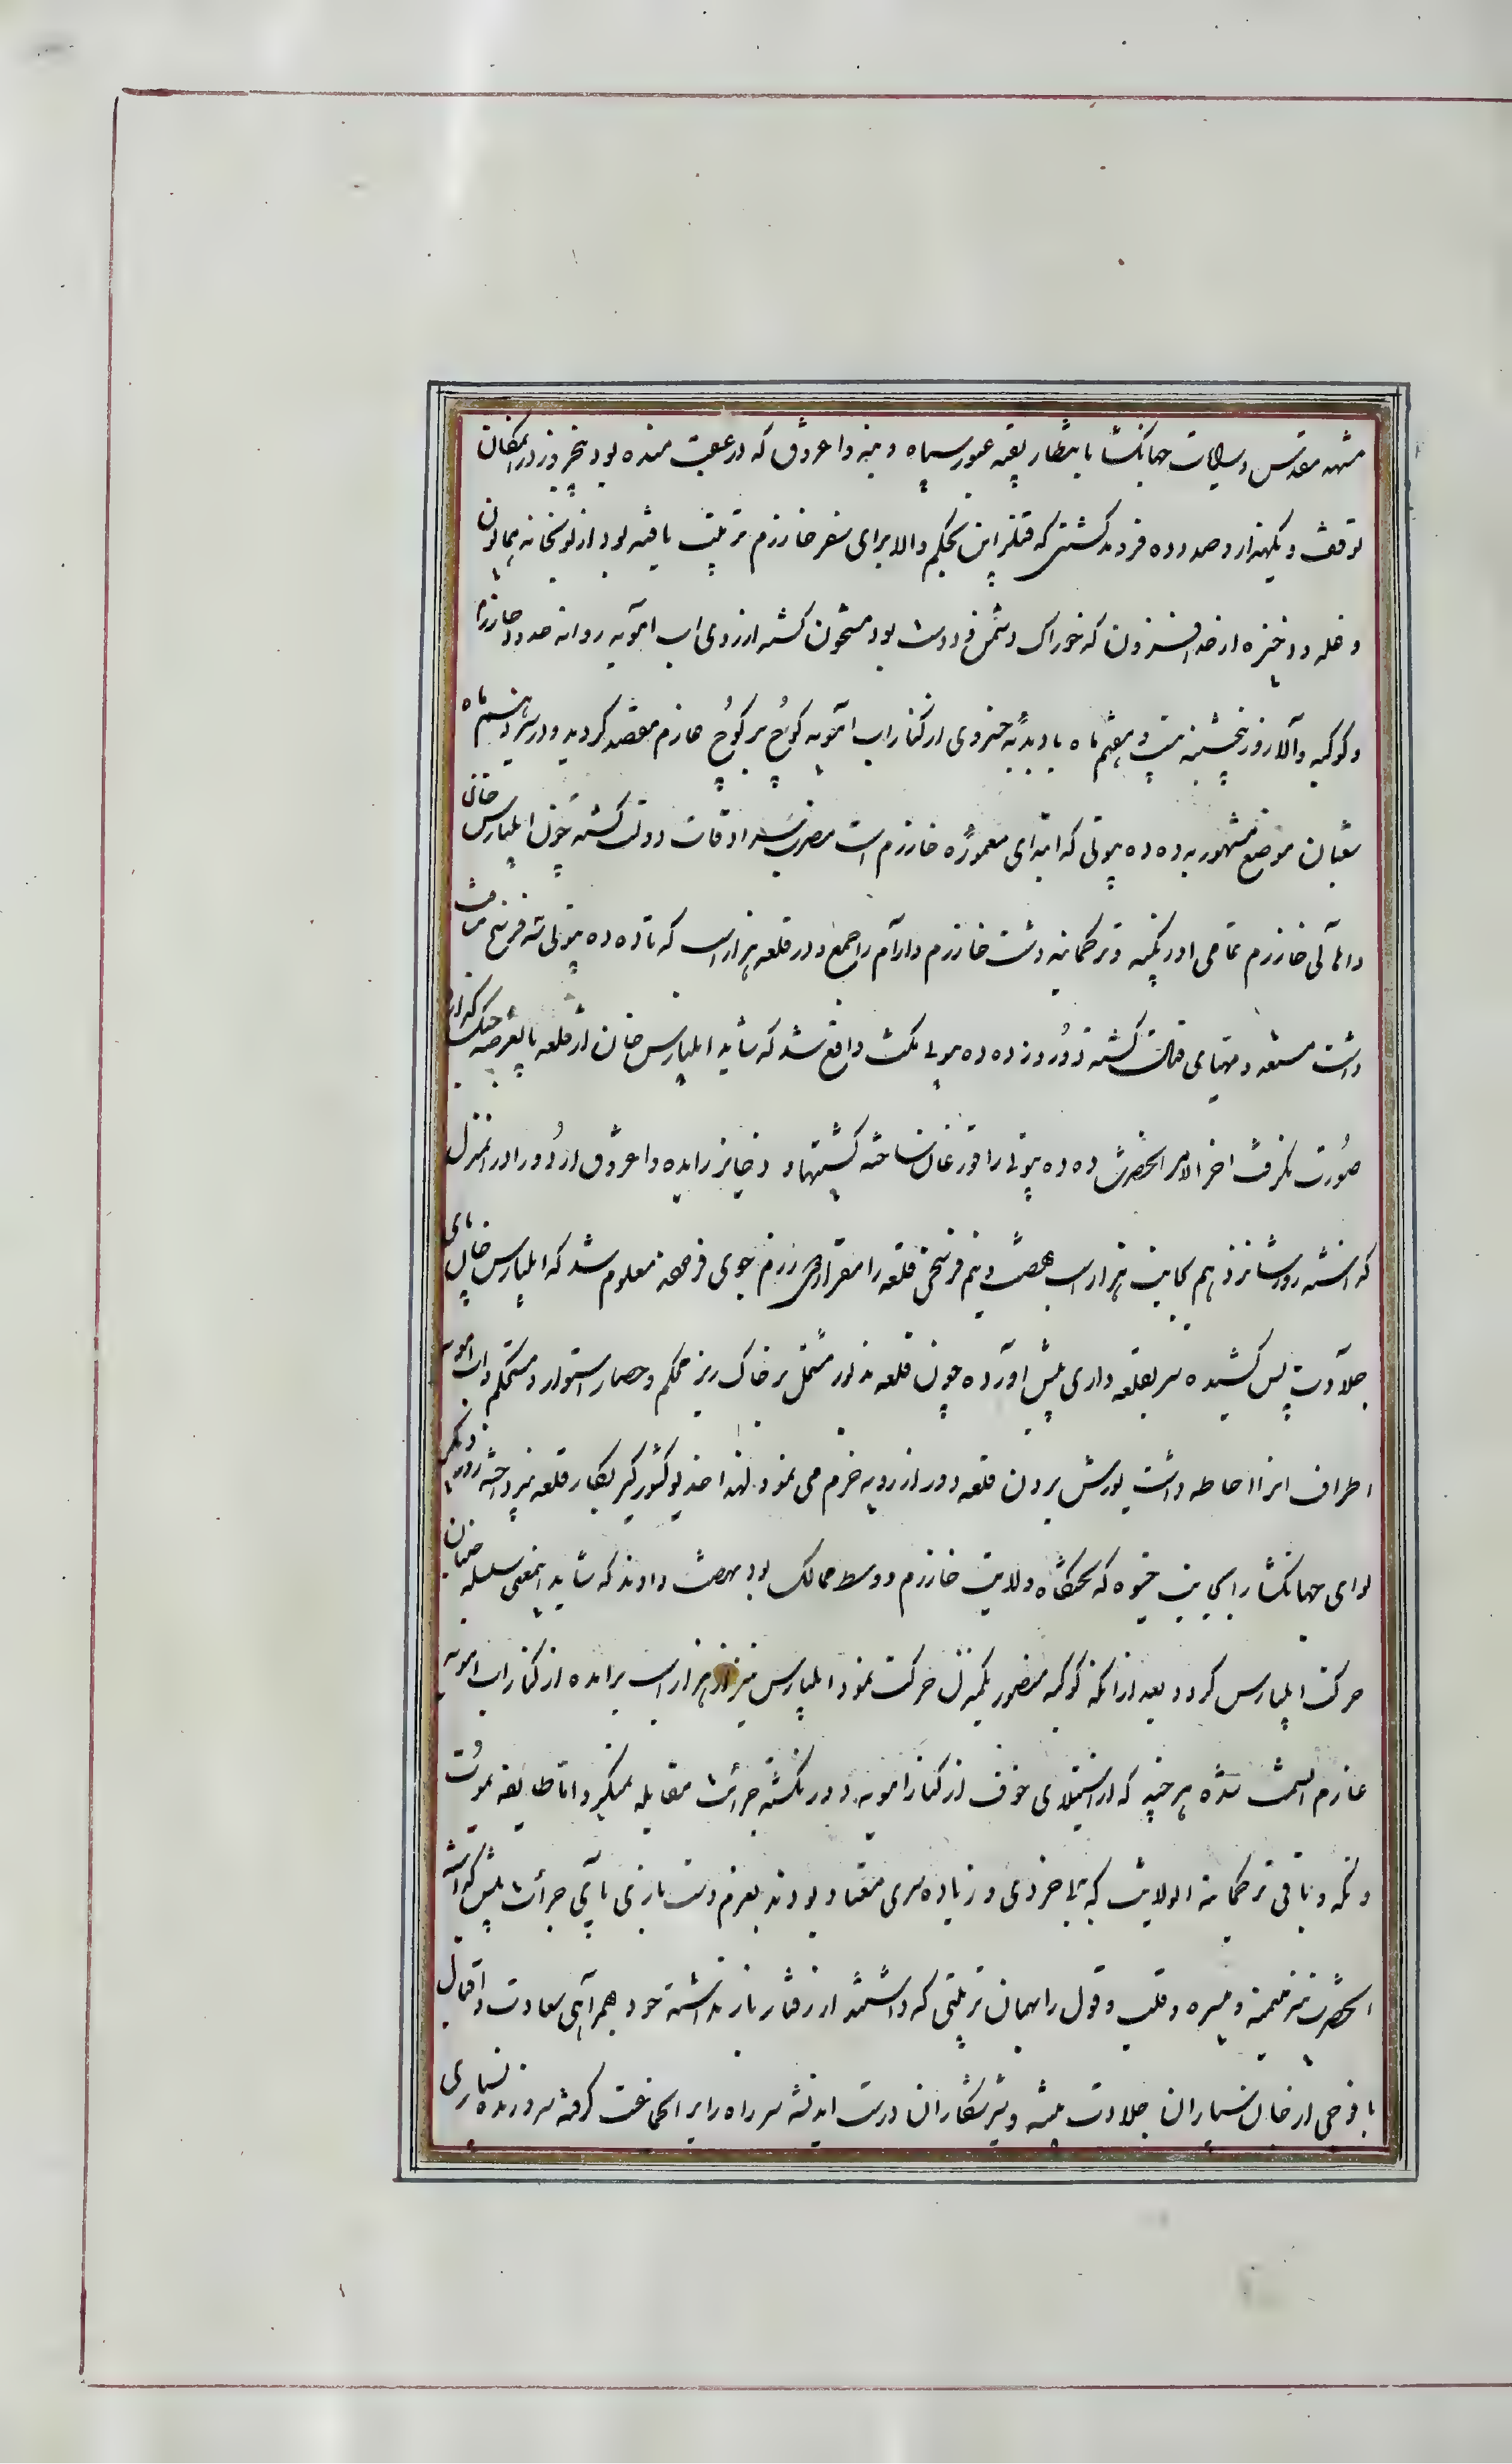 مشهد مقدس و رایات جهانگشا بانتظار بقیه عبور سپاه و بنه و اغروق که در عقب مانده بود پنجروز در انمکان
توقف و یکهزار و صد و ده فروند کشتی که قبل از این بحکم والا برای سفر خارزم ترتیب یافته بود از توپخانه همایون
و غله و ذخیره از حد افزون که خوراک دشمن و دوست بود مشحون گشته از روی اب امویه روانه حدود خارزم
و کوکبه والا روز پنجشنبه بیست و هفتم ماه با دبدبه خسروی از کنار اب امویه کوچ بر کوچ عازم مقصد گردید و در سیزدهم ماه
شعبان موضع مشهور به ده ده بیوتی که ابتدای معموره خارزم است مضرب سرادقات دولت گشته چون ایلبارس خان
والی خارزم تمامی اوزبکیه و ترکمانیه دشت خارزم و ارال را جمع و در قلعه هزاراسب که تا ده ده بیوتی سه فرسخ مسافت
داشت مستعد و مهیای قتال گشته دو روز ده ده بیوتی مکث واقع شد که شاید ایلبارس خان از قلعه بعرصه جنک که از
صورت نگرفت اخر الامر انحضرت ده ده بیوتی را قورغان ساخته کشتیها و ذخایر زایده و اغروق اردو را در انمنزل
گذاشته روز شانزدهم بجانب هزاراسب نهضت و نیم فرسخی قلعه را مقر اردوی رزم جوی فرموده معلوم شد که ایلبارس خان پای
جلادت پس کشیده سر بقلعه داری پیش اورده چون قلعه مذکور مشتمل بر خاک ریز محکم و حصار استوار و مستحکم و اب امویه
اطراف انرا احاطه داشت یورش بردن قلعه دور از رویه حزم می نمود لهذا خدیو کشورگیر بکار قلعه نپرداخته روز دیگر
لوای جهانگشا را بجانب خیوه که تختگاه ولایت خارزم و وسط ممالک بود نهضت دادند که شاید اینمعنی سلسله جنبان
حرکت ایلبارس گردد بعد از انکه کوکبه منصور یکمنزل حرکت نمود ایلبارس نیز از هزاراسب برامده از کنار اب امویه
عازم انسمت شده هر چند که از استیلای خوف از کنار امویه دور نگشته جرات مقابله نمیکرد اما طایفه یموت
و تکه و باقی ترکمانیه انولایت که به بیخردی و زیاده سری معتاد بودند بعزم دست بازی پای جرات پیش گذاشته
انحضرت نیز میمنه و میسره و قلب و قول را بهمان ترتیبی که داشتند از رفتار باز نداشته خود بهمراهی سعادت و اقبال
با فوجی از جان نسپاران جلادت پیشه و شیر شکاران درست اندیشه سر راه را بر انجماعت گرفته سر و زنده بسیاری